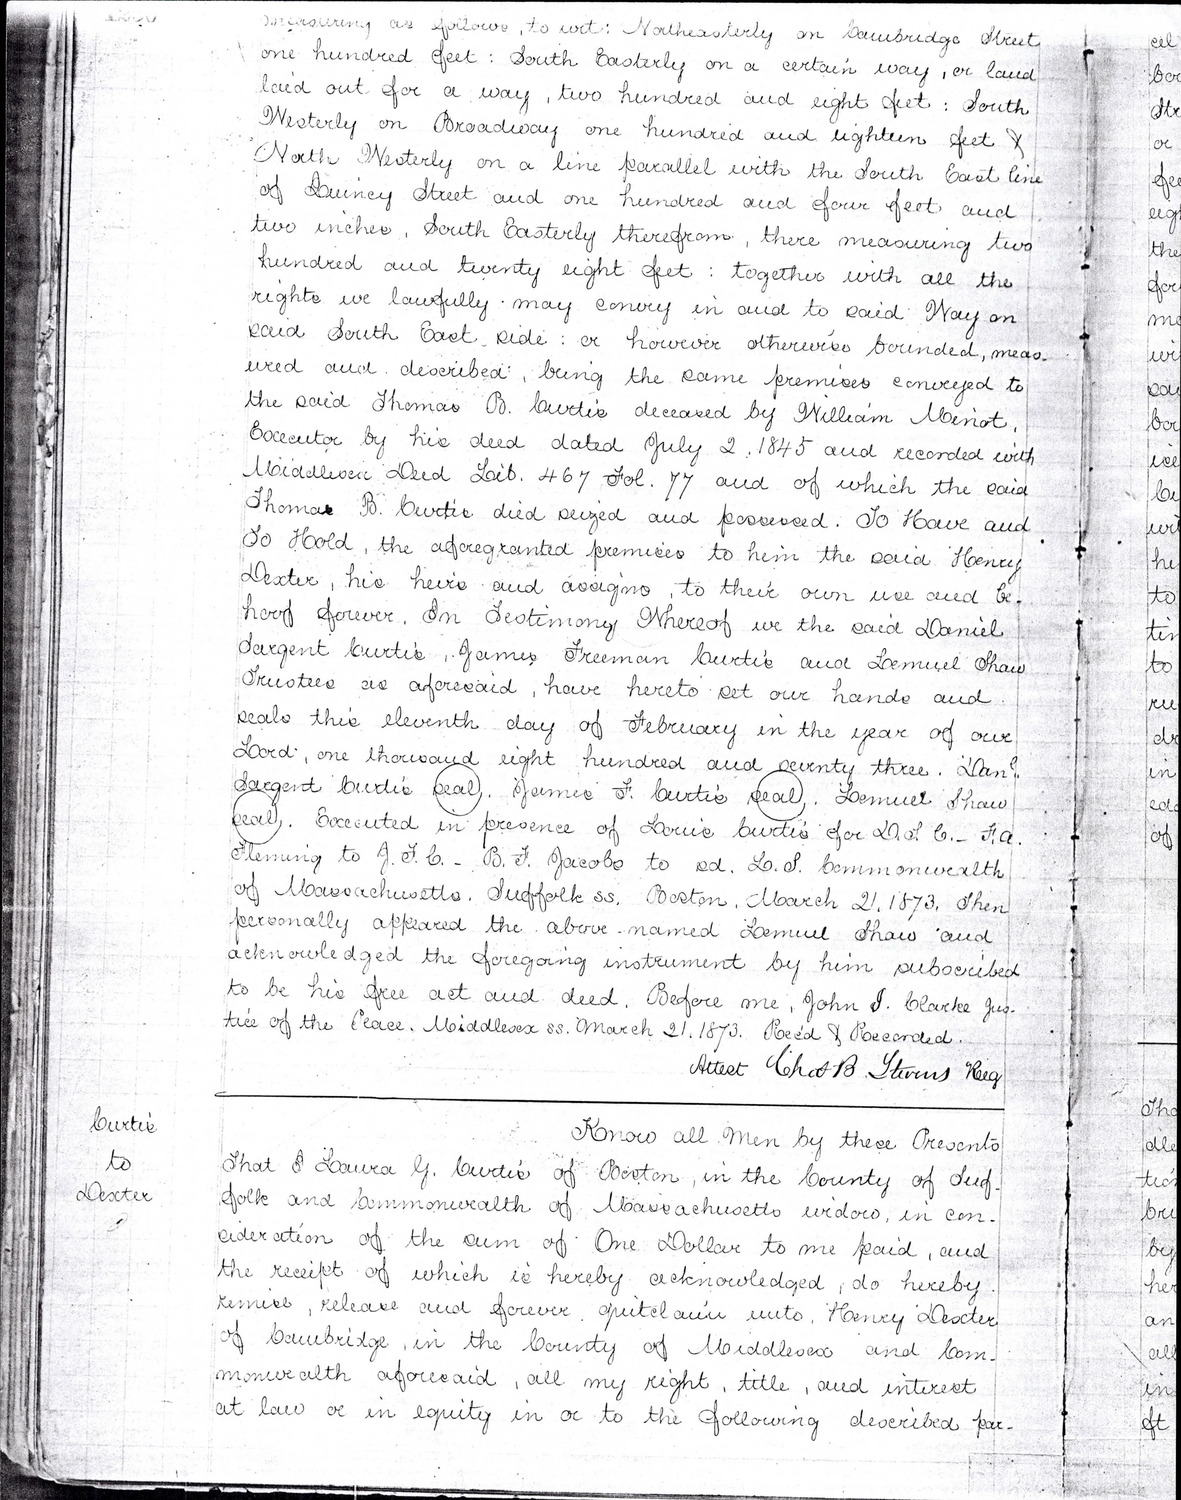 measuring as follows, to wit: Northeasterly on Cambridge Street
one hundred feet: South Easterly on a certain way, or land
laid out for a way, two hundred and eight feet: South
Westerly on Broadway one hundred and eighteen feet &
North Westerly on a line parallel with the South East line
of Quincy Street and one hundred and four feet and
two inches, South Easterly therefrom, there measuring two
hundred and twenty eight feet: together with all the
rights we lawfully may convey in and to said Way on
said South East side: or however otherwise bounded, meas-
ured and described, being the same premises conveyed to
the said Thomas B. Curtis deceased by William Minot,
Executor by his deed dated July 2, 1845 and recorded with
Middlesex Deed Lib. 467 Fol. 77 and of which the said
Thomas B. Curtis died seized and possessed. To Have and
To Hold, the aforegranted premises to him the said Henry
Dexter, his heirs and assigns, to their own use and be-
hoof forever. In Testimony Whereof we the said Daniel
Sargent Curtis, James Freeman Curtis and Lemuel Shaw
Trustees as aforesaid, have hereto set our hands and
seals this eleventh day of February in the year of our
Lord, one thousand eight hundred and seventy three. Danl.
Sargent Curtis seal. James F. Curtis seal. Lemuel Shaw
seal. Executed in presence of Louis Curtis for D.S.C. - F.A.
Fleming to J.F.C. - B.F. Jacobs to sd. L.S. Commonwealth
of Massachusetts. Suffolk ss. Boston, March 21, 1873. Then
personally appeared the above-named Lemuel Shaw and
acknowledged the foregoing instrument by him subscribed
to be his free act and deed, Before me, John J. Clarke Jus-
tice of the Peace. Middlesex ss. March 21, 1873. Rec'd & Recorded.
Attest Chas B. Stevens Reg
Curtis
to
Dexter
Know all Men by these Presents
That I Laura G. Curtis of Boston, in the County of Suf-
folk and Commonwealth of Massachusetts widow, in con-
sideration of the sum of One Dollar to me paid, and
the receipt of which is hereby acknowledged, do hereby
remise, release and forever quitclaim unto, Henry Dexter
of Cambridge, in the County of Middlesex and Com-
monwealth aforesaid, all my right, title, and interest
at law or in equity in or to the following described par-